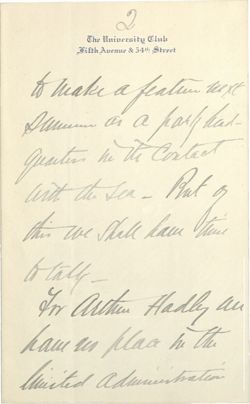 2
The University Club
Fifth Avenue & 54th Street
to make a feature next
Summer as a party head-
quarters in the contact
with the Sea - But of
this we shall have time
to talk -
For Arthur Hadley we
have no place in the
limited administration